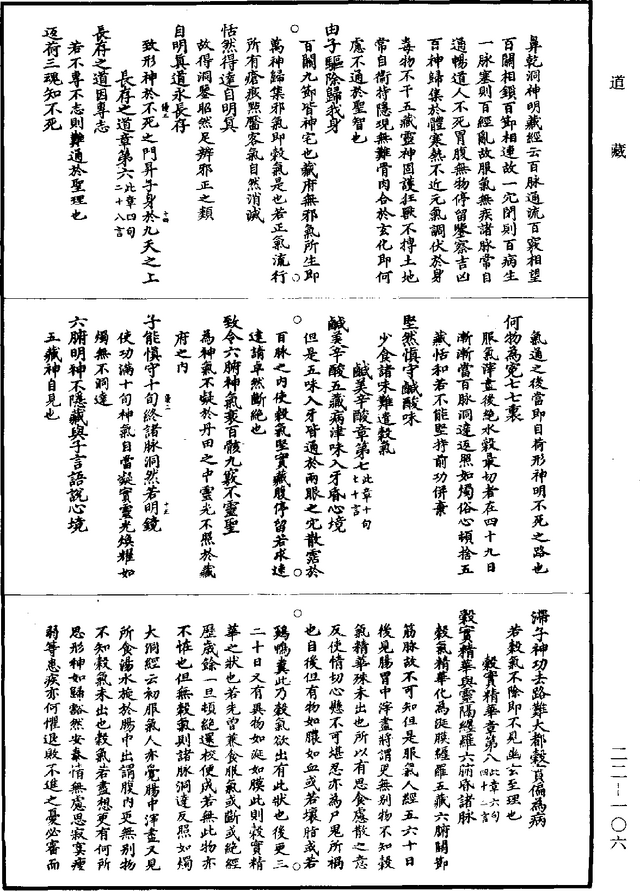 道藏
二二—一〇六
鼻乾洞神明藏經云百脉通流百竅相望
百關相鎖百節相連故一穴閉則百病生
一脉塞則百經亂故服氣無疾諸脉常自
通暢道人不死胃腹無物停留鑒察吉凶
百神歸集於體寒熱不近元氣調伏於身
毒物不干五藏靈神固護狂獸不摶土地
常自衞持隱現無難骨肉合於玄化即何
慮不通於聖智也
由子驅除歸我身
百關九節皆神宅也藏府無邪氣所生即
萬神歸集邪氣即穀氣是也若正氣流行
所有瘡痍黖黶客氣自然消滅
怙然得達自明真
故得洞鑒昭然足辨邪正之類
自明真道永長存
致形神於不死之門昇子身於九天之上
長存之道章第六此章四句二十八言
長存之道因專志
若不專不志則難通於聖理也
返荷三魂知不死
氣通之後當即自荷形神明不死之路也
何物為寃七七裏
服氣滓盡後絶水穀最切者在四十九日
漸漸當百脉洞達返照如燭俗心頓捨五
藏恬和若不能堅持前功併棄
堅然慎守鹹酸味
少食諸味難遣穀氣
鹹美辛酸章第七此章十句七十言
鹹美辛酸五藏病津味入牙昏心境
但是五味入牙皆通於兩眼之穴散霑於
百脉之内使穀氣堅實藏腹停留若求速
達請卓然斷絶也
致令六腑神氣衰百骸九竅不靈聖
為神氣不凝於丹田之中靈光不照於藏
府之内
子能慎守十旬終諸脉洞然若明鏡
使功滿十旬神氣自當凝實靈光煥耀如
燭無不洞達
六腑明神不隱藏與子言語說心境
五藏神自見也
滯子神功去路難大都穀實偏為病
若穀氣不除即不見幽玄至理也
穀實精華章第八此章六句四十二言
穀實精華與靈隔纏羅六腑昏諸脉
穀氣精華化為涎膜纏羅五藏六腑關節
筋脉故不可知但是服氣人經五六十日
後見腸胃中滓盡將謂更無别物不知穀
氣精華殊未出也所以有思食慮散之意
反使情切心懸不可堪忍亦為尸鬼所禍
也自後但有物如膿如血或若壞脂或若
鷄鴨糞此乃穀氣欲出有此狀也後更三
二十日又有異物如涎如膜此則穀實精
華之狀也若先曾兼食服氣或斷或絶經
歷歲餘一旦頓絶還校便成若無此物亦
不恠也但無穀氣則諸脉洞達反照如燭
大洞經云初服氣人亦覺腸中滓盡又見
所食湯水掩於腸中出謂腹内更無别物
不知穀氣未出也穀氣若盡想更有何所
思形神如歸豁然安泰情無處思寂寞瘦
弱等患疾亦何懼退敗不進之憂必審而